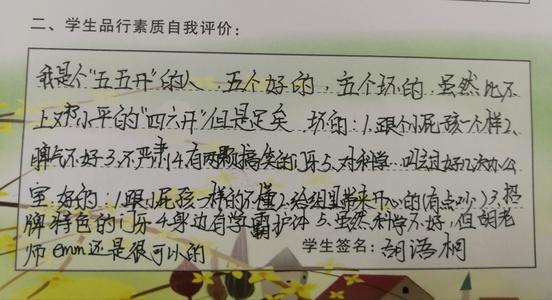 二、学生品行素质自我评价:
我是个“五五开”的人，五个好的，五个坏的，虽然比不
上邓小平的“四六开”但是足矣 坏的:1.跟个小屁孩一个样2、
脾气不好3.不严肃4.有两颗搞笑的门牙5、对科学 叫去过好几次办公
室 好的:1.跟小屁孩一样的不懂2.给组里带来开心的(有点吵)3.招
牌特色的门牙4.身边有学霸护体5.虽然科学不好，但胡老
师emm还是很可以的 学生签名:胡语桐